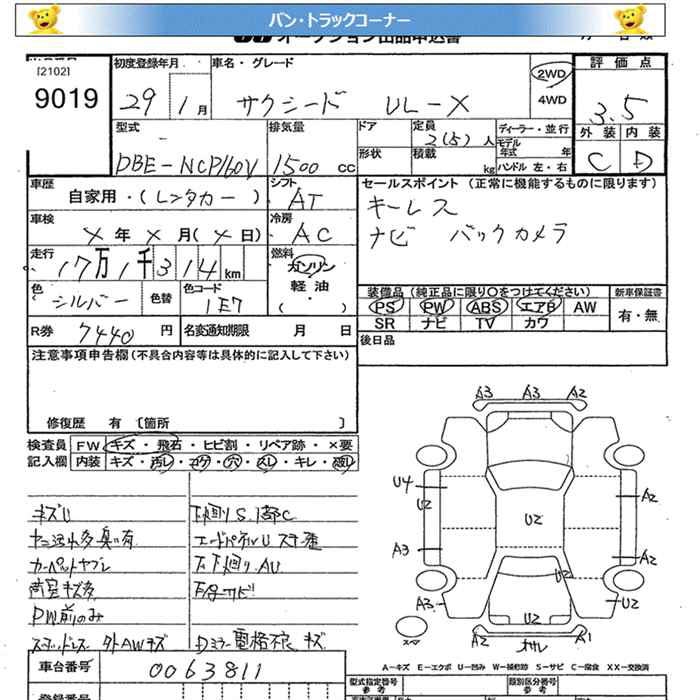 バン・トラックコーナー
オークション出品申込書
[2102]
9019
初度登録年月
29 1月
車名・グレード
サクシード UL-X
2WD
4WD
評価点
3.5
外装 内装
C D
型式
DBE-NCP160V
排気量
1500 cc
ドア
形状
定員
2(5)人
積載
kg
ディーラー・並行
モデル年式 年
ハンドル 左・右
車歴
自家用・(レンタカー)
シフト
AT
車検
X年X月(X日)
冷房
AC
走行
17万1千314km
燃料
ガソリン
軽油
( )
色
シルバー
色替
色コード
1E7
R券
7440 円
名変通知期限 月 日
セールスポイント (正常に機能するものに限ります)
キーレス
ナビ バックカメラ
装備品 (純正品に限り○をつけてください)
PS PW ABS エアB AW
SR ナビ TV カワ
新車保証書
有・無
後日品
注意事項申告欄(不具合内容等は具体的に記入して下さい)
修復歴 有 [箇所 ]
検査員記入欄
FW キズ・飛石・ヒビ割・リペア跡・×要
内装 キズ・汚レ・コゲ・穴・スレ・キレ・破レ
キズU
ヤニ汚れ多臭い有
カーペットヤブレ
荷室キズ多
PW前のみ
外AWキズ
下廻りS.1部C
エンドパネルU
下廻りAU
サビ
Dミラー電格不良 キズ
A3 A3 A2
U4
U2
A3
A3
A2
A2
U2
U2
U2
U2
A2
A1
スペア
A-キズ E-エクボ U-凹み W-補修跡 S-サビ C-腐食 XX-交換済
車台番号
0063811
登録番号
型式指定番号
参考
類別区分番号
参考